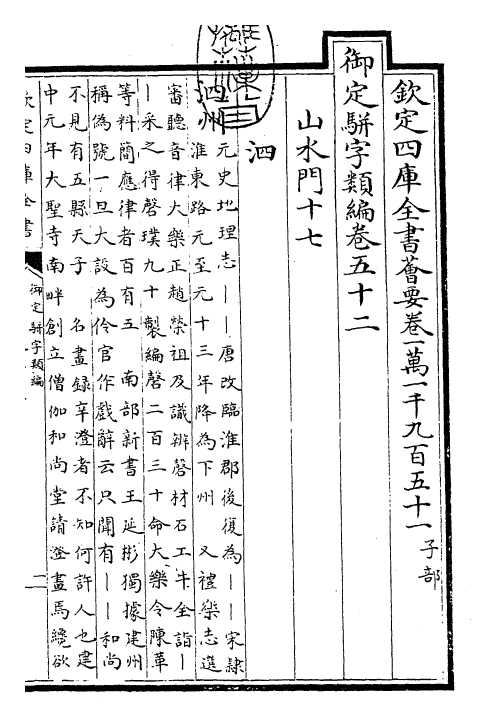 欽定四庫全書薈要卷一萬一千九百五十一子部
御定駢字類編卷五十二
山水門十七
泗
泗州元史地理志――唐改臨淮郡後復為――宋隸
淮東路元至元十三年降為下州 又禮樂志選
審聽音律大樂正趙榮祖及識辨磬材石工牛全詣―
―采之得磬璞九十製編磬二百三十命大樂令陳革
等料簡應律者百有五 南部新書王延彬獨據建州
稱偽號一旦大設為伶官作戲辭云只聞有――和尚
不見有五縣天子 名畫録辛澄者不知何許人也建
中元年大聖寺南畔創立僧伽和尚堂請澄畫焉纔欲
欽定四庫全書
御定駢字類編